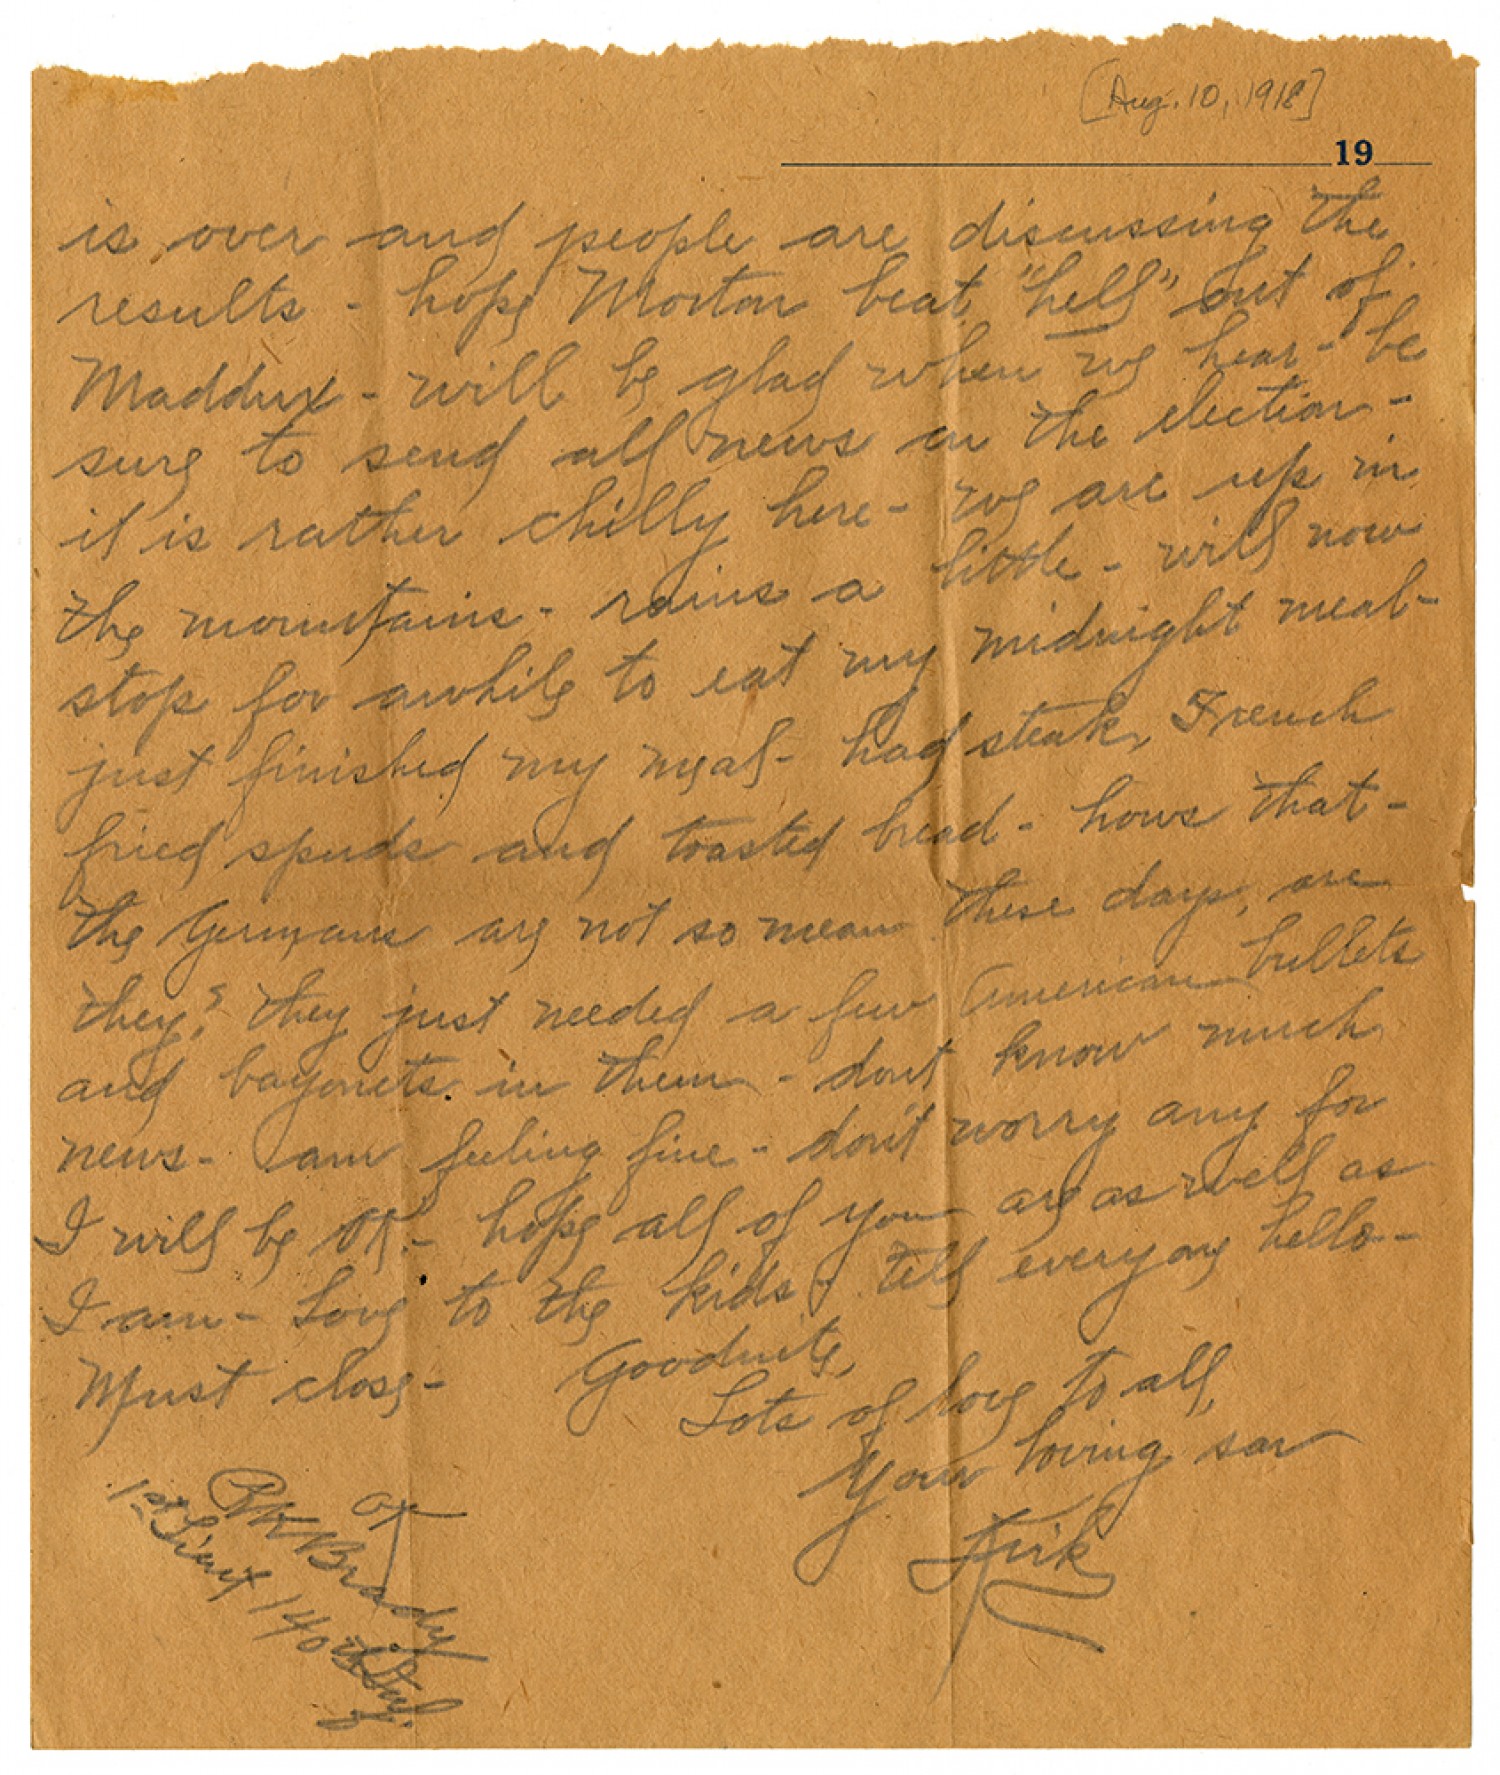 [Aug. 10, 1918]
19
is over and people are discussing the
results - hope Morton beat "hell" out of
Maddux - will be glad when we hear - be
sure to send all news on the election -
it is rather chilly here - we are up in
the mountains - rains a little - will now
stop for awhile to eat my midnight meal -
just finished my meal - had steak, French
fried spuds and toasted bread - hows that -
the Germans are not so mean these days, are
they? they just needed a few American bullets
and bayonets in them - dont know much
news - I am feeling fine - don't worry any for
I will be OK - hope all of you are as well as
I am - Love to the kids & tell everyone hello -
Must close - Goodnite,
Lots of love to all,
Your loving son
Kirk
OK
Brady
1st Lieut 140th Inf.